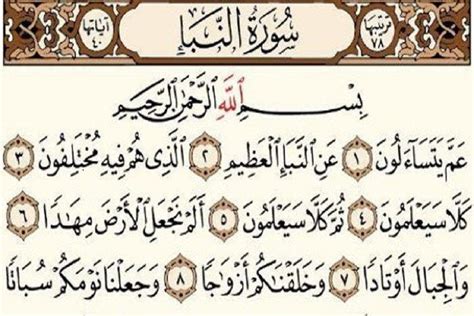 ترتيبها ٧٨ سُورَةُ النَّبَإِ آياتها ٤٠
بِسْمِ اللَّهِ الرَّحْمَنِ الرَّحِيمِ
عَمَّ يَتَسَاءَلُونَ ١ عَنِ النَّبَإِ الْعَظِيمِ ٢ الَّذِي هُمْ فِيهِ مُخْتَلِفُونَ ٣
كَلَّا سَيَعْلَمُونَ ٤ ثُمَّ كَلَّا سَيَعْلَمُونَ ٥ أَلَمْ نَجْعَلِ الْأَرْضَ مِهَادًا ٦
وَالْجِبَالَ أَوْتَادًا ٧ وَخَلَقْنَاكُمْ أَزْوَاجًا ٨ وَجَعَلْنَا نَوْمَكُمْ سُبَاتًا